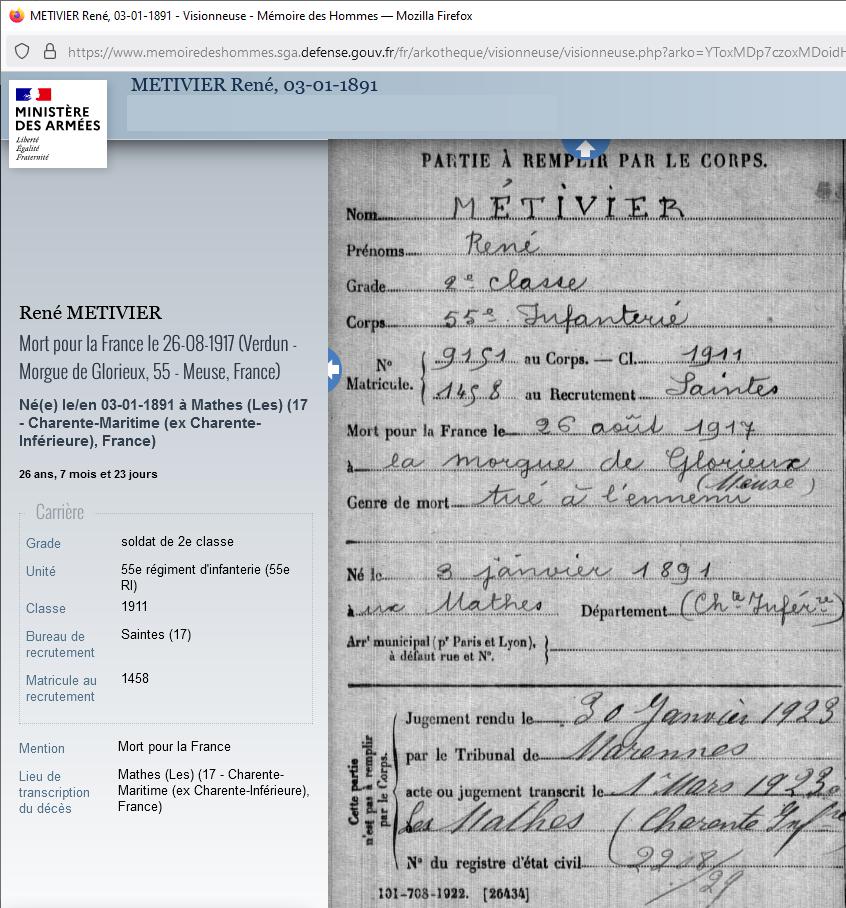 METIVIER René, 03-01-1891 - Visionneuse - Mémoire des Hommes — Mozilla Firefox
https://www.memoiredeshommes.sga.defense.gouv.fr/fr/arkotheque/visionneuse/visionneuse.php?arko=YToxMDp7czoxMDoidH
METIVIER René, 03-01-1891
MINISTÈRE
DES ARMÉES
Liberté
Égalité
Fraternité
René METIVIER
Mort pour la France le 26-08-1917 (Verdun -
Morgue de Glorieux, 55 - Meuse, France)
Né(e) le/en 03-01-1891 à Mathes (Les) (17
- Charente-Maritime (ex Charente-
Inférieure), France)
26 ans, 7 mois et 23 jours
Carrière
Grade soldat de 2e classe
Unité 55e régiment d'infanterie (55e
RI)
Classe 1911
Bureau de recrutement Saintes (17)
Matricule au recrutement 1458
Mention Mort pour la France
Lieu de transcription du décès Mathes (Les) (17 - Charente-
Maritime (ex Charente-Inférieure),
France)
PARTIE À REMPLIR PAR LE CORPS.
Nom MÉTIVIER
Prénoms René
Grade 2e classe
Corps 55e Infanterie
N° Matricule.
9151 au Corps. — Cl. 1911
1458 au Recrutement Saintes
Mort pour la France le 26 août 1917
à la morgue de Glorieux
(Meuse)
Genre de mort tué à l'ennemi
Né le 3 janvier 1891
à ux Mathes Département (Chte Inférre)
Arrt municipal (pr Paris et Lyon),
à défaut rue et N°.
Cette partie
n'est pas à remplir
par le Corps.
Jugement rendu le 30 Janvier 1923
par le Tribunal de Marennes
acte ou jugement transcrit le 1r Mars 1923
Les Mathes (Charente Infre
N° du registre d'état civil
101-708-1922. [26434]